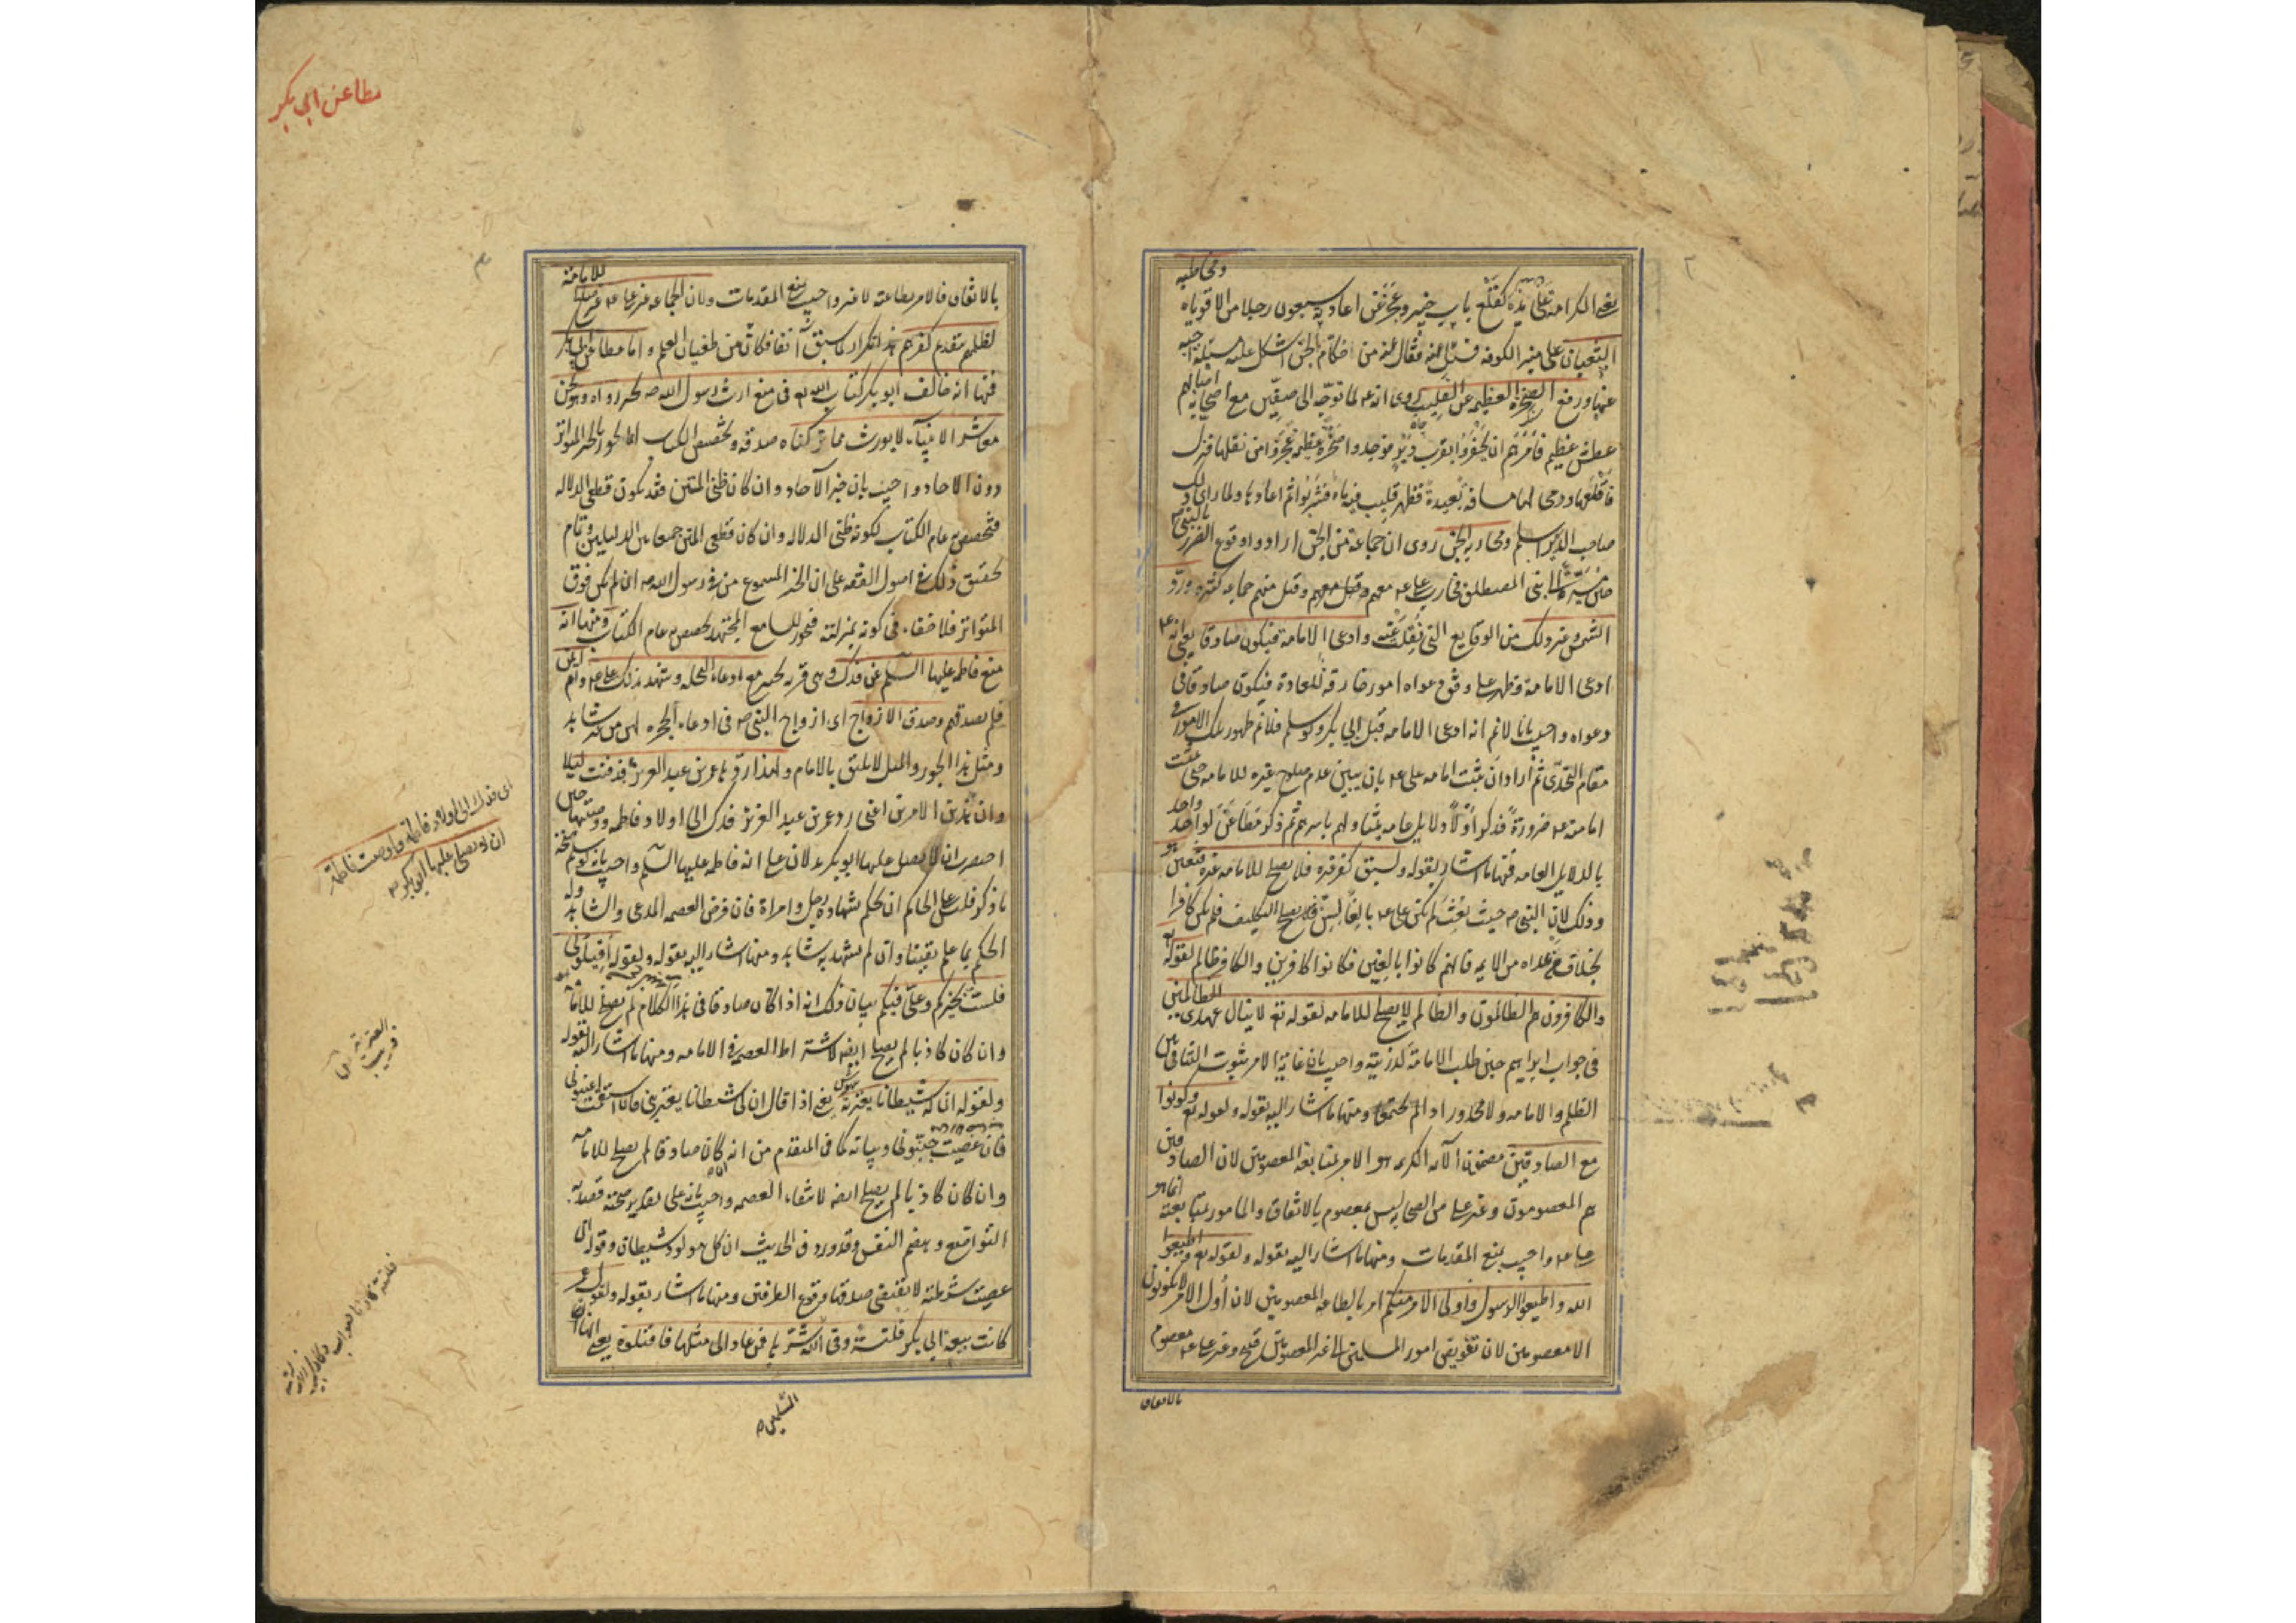 ٢
ومخاطبة
يعنى الكرامة على يده كقلع باب خيبر وعجز عن اعادته سبعون رجلا من الاقوياء
الثعبان على منبر الكوفة فسئل عنه فقال عنه من حكام الجن اشكل عليه مسئلة اجبته
عنها ورفع الصخرة العظيمة عن القليب روى انه ع لما توجه الى صفين مع اصحابه اصابهم
عطش عظيم فامرهم ان يحفروا بقرب دير فوجدوا صخرة عظيمة عجزوا من نقلها فنزل
فاقلعها ورمى بها مسافة بعيدة فظهر قليب فيه ماء فشربوا ثم اعادها ولما راى ذلك
صاحب الدير اسلم ومحاربة الجن روى ان جماعة من الجن ارادوا وقوع الضرر بالنبي ص
حين مسيره الى بنى المصطلق فحارب على ع معهم وقتل منهم جماعة كثيرة ورد
الشمس وغير ذلك من الوقايع التى نقلت عنه وادعى الامامة فيكون صادقا يعنى انه ع
ادعى الامامة وظهر على وفق دعواه امور خارقة للعادة فيكون صادقا فى
دعواه واجيب بانا لا نم انه ادعى الامامة قبل ابى بكر ولو سلم فلا نم ظهور تلك الامور فى
مقام التحدى ثم اراد ان يثبت امامة على ع بان يبين عدم صلوح غيره للامامة حتى يثبت
امامته ع ضرورة فذكر اولا دلايل عامة يتناولهم باسرهم ثم ذكر مطاعن كل واحد واحد
بالدلايل العامة فمنها ما اشار بقوله ولسبق كفر غيره فلا يصلح للامامة غيره فتعين هو
وذلك لان النبى ص حيث بعث لم يكن على ع بالغا سن التكليف فلم يكن كافرا
بخلاف من عداه من الايمة فانهم كانوا بالغين فكانوا كافرين والكافر ظالم لقوله تع
والكافرون هم الظالمون والظالم لا يصلح للامامة لقوله تع لا ينال عهدى الظالمين
فى جواب ابراهيم حين طلب الامامة لذريته واجيب بان غاية الامر ثبوت التنافى بين
الظلم والامامة ولا محذور اذا لم يجتمعا ومنها ما اشار اليه بقوله ولقوله تع وكونوا
مع الصادقين مضمون الآية الكريمة هو الامر بمتابعة المعصومين لان الصادقين
هم المعصومون وغير على من الصحابة ليس بمعصوم بالاتفاق والمامور بمتابعته انما هو
على ع واجيب بمنع المقدمات ومنها ما اشار اليه بقوله ولقوله تع اطيعوا
الله واطيعوا الرسول واولى الامر منكم امر باطاعة المعصومين لان اولى الامر لا يكونون
الا معصومين لان تفويض امور المسلمين الى غير المعصومين قبيح وغير على ع معصوم
بالاتفاق
مطاعن ابى بكر
٣
للامامة
بالاتفاق فالامر بطاعته لا غير واجيب بمنع المقدمات ولان الجماعة غير على ع غير صلحا
لظلمهم بتقدم كفرهم هذا تكرار لما سبق آنفا فكان من طغيان القلم واما مطاعن ابى بكر
فمنها انه خالف ابو بكر كتاب الله تع فى منع ارث رسول الله ص بخبر رواه وهو نحن
معاشر الانبياء لا نورث مما تركناه صدقة وتخصيص الكتاب انما يجوز بالخبر المتواتر
دون الاحاد واجيب بان خبر الآحاد وان كان ظنى المتن فقد يكون قطعى الدلالة
فتخصص به عام الكتاب لكونه ظنى الدلالة وان كان قطعى المتن جمعا بين الدليلين وتمام
تحقيق ذلك فى اصول الفقه على ان الخبر المسموع من فى رسول الله ص ان لم يكن فوق
المتواتر فلا خفاء فى كونه بمنزلته فيجوز للسامع المجتهد تخصيص عام الكتاب ومنها انه
منع فاطمة عليها السلم عن فدك وهى قرية بخيبر مع ادعاء النحلة وشهد بذلك على ع وام ايمن
فلم يصدقهم وصدق الازواج اى ازواج النبى ص فى ادعاء الحجرة لهن من غير شاهد
ومثل هذا الجور والميل لا يليق بالامام ولهذا ردها عمر بن عبد العزيز فدفنت ليلا
وان هذين الامرين اعنى رد عمر بن عبد العزيز فدك الى اولاد فاطمة ووصيتها حين
احتضرت ان لا يصلى عليها ابو بكر يدلان على انه ظلم فاطمة عليها السلم واجيب بانه لو سلم صحة
ما ذكر فليس على الحاكم ان يحكم بشهادة رجل وامراة وان فرض العصمة المدعى والشاهد وله
الحكم بما علم يقينا وان لم يشهد به شاهد ومنها ما اشار اليه بقوله ولقوله اقيلونى
فلست بخيركم وعلى فيكم بيان ذلك انه اذا كان صادقا فى هذا الكلام لم يصلح للامامة
وان كان كاذبا لم يصلح ايضا لاشتراط العصمة فى الامامة ومنها ما اشار اليه بقوله
ولقوله ان له شيطانا يعتريه يعنى اذا قال ان لى شيطانا يعترينى فان استقمت اعينونى
فان عصيت جنبونى وبيانه كما فى المتقدم من انه كان صادقا لم يصلح للامامة
وان كان كاذبا لم يصلح ايضا لانتفاء العصمة واجيب بانه على تقدير صحته قصد به
التواضع وهضم النفس وقد ورد فى الحديث ان كل مولود شيطان وقوله ان
عصيت شرطية لا يقتضى صدقها وقوع الطرفين ومنها ما اشار بقوله ولقول عمر
كانت بيعة ابى بكر فلتة وقى الله شرها فمن عاد الى مثلها فاقتلوه يعنى انها
المسلمين
اى فدك الى اولاد فاطمة واوصت فاطمة
ان لا يصلى عليها ابو بكر